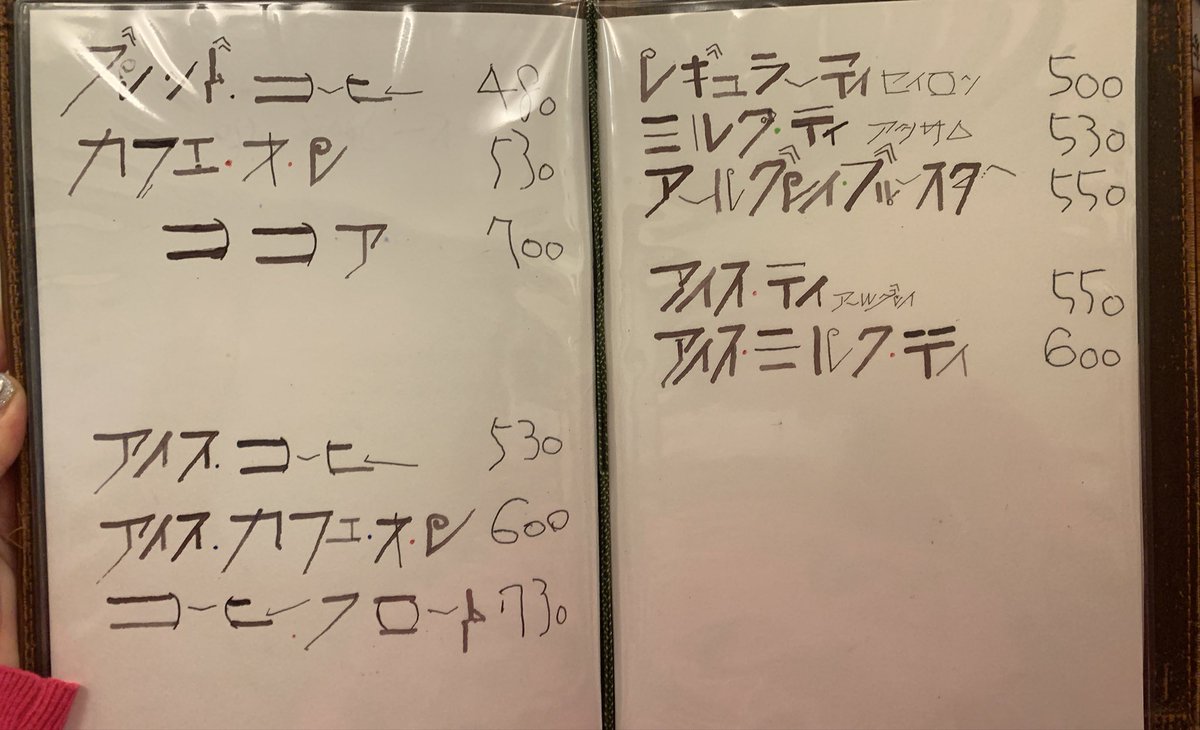 ブレンド.コーヒー 480
カフェ・オ・レ 530
ココア 700
アイス.コーヒー 530
アイス.カフェ・オ・レ 600
コーヒー.フロート 730
レギュラーティ セイロン 500
ミルク・ティ アッサム 530
アールグレイ・ブルースター 550
アイス・ティ アールグレイ 550
アイス・ミルク・ティ 600